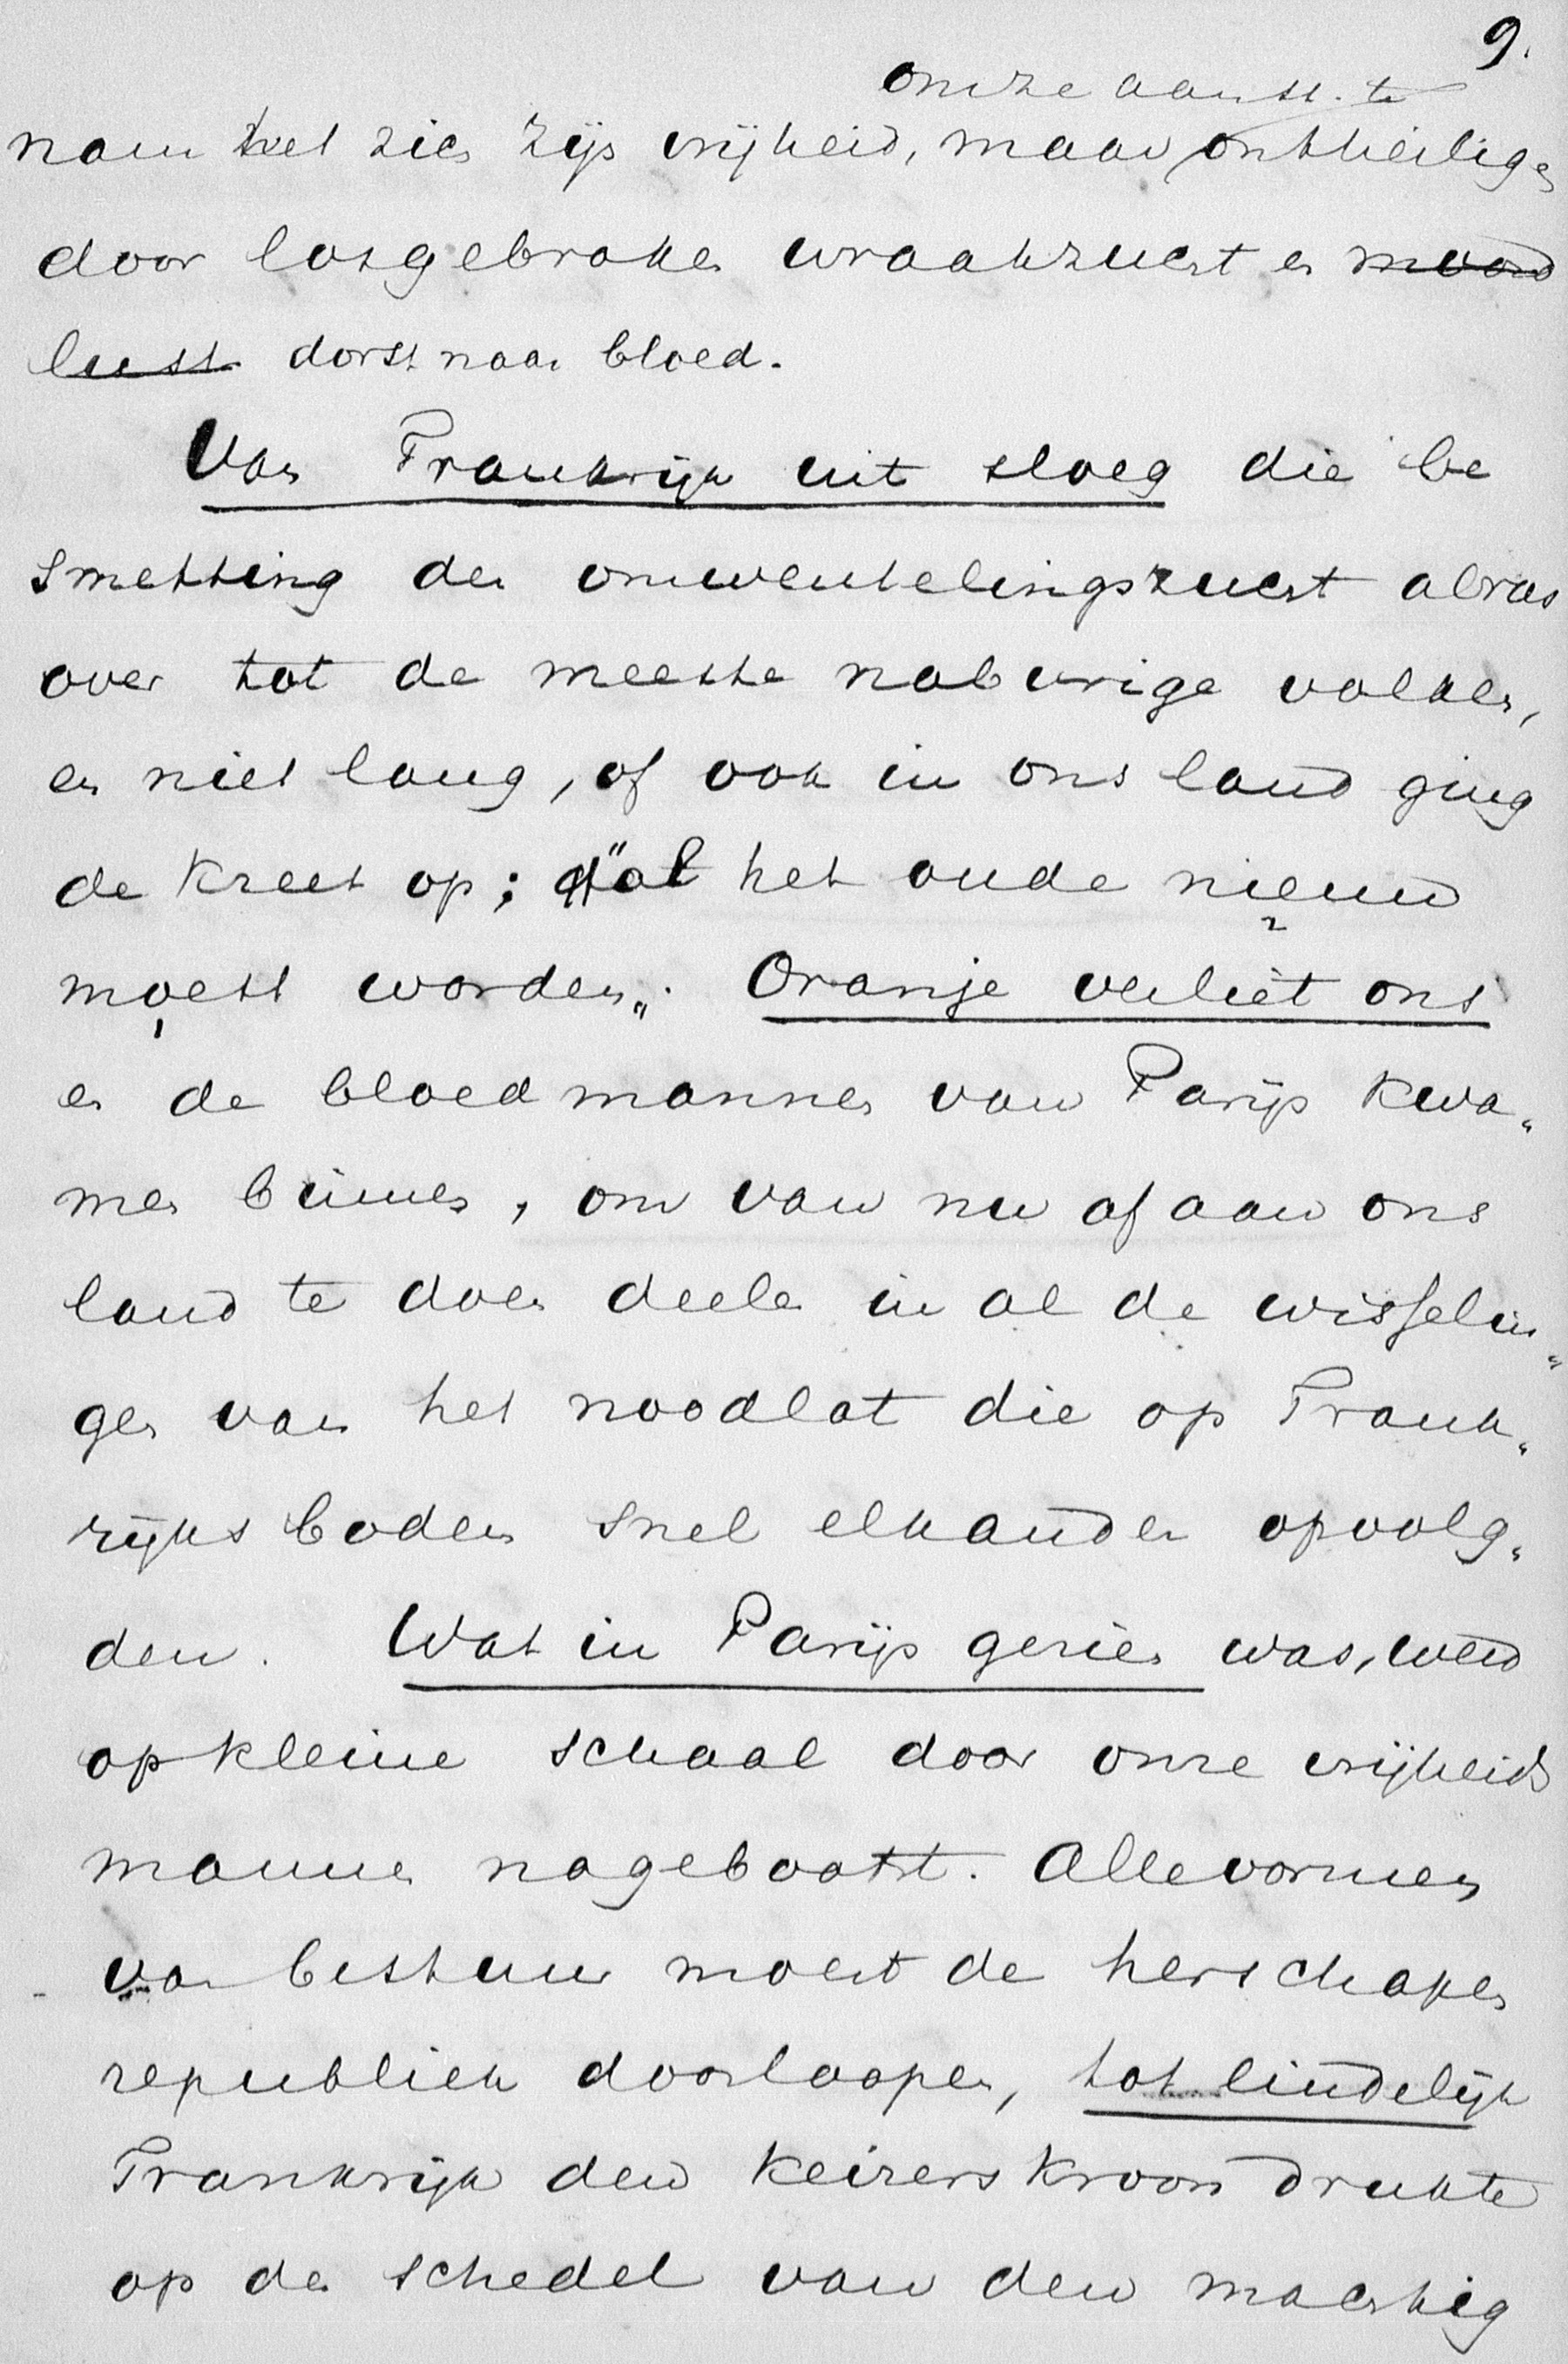 9.
nam het zich zijn vrijheid, maar ontheiligd
door losgebroken wraakzucht en moord
lust dorst naar bloed.
Van Frankrijk uit sloeg die be
smetting der omwentelingszucht alras
over tot de meeste naburige volken,
en niet lang, of ook in ons land ging
de kreet op; "dat het oude nieuw
moest worden". Oranje verliet ons
en de bloedmannen van Parijs kwa„
men binnen, om van nu af aan ons
land te doen deelen in al de wisselin„
gen van het noodlot die op Frank„
rijks bodem snel elkander opvolg„
den. Wat in Parijs gezien was, werd
op kleine schaal door onze vrijheids
mannen nagebootst. Alle vormen
van bestuur moest de herschapen
republiek doorloopen, tot eindelijk
Frankrijk den keizerskroon drukte
op de schedel van den machtig